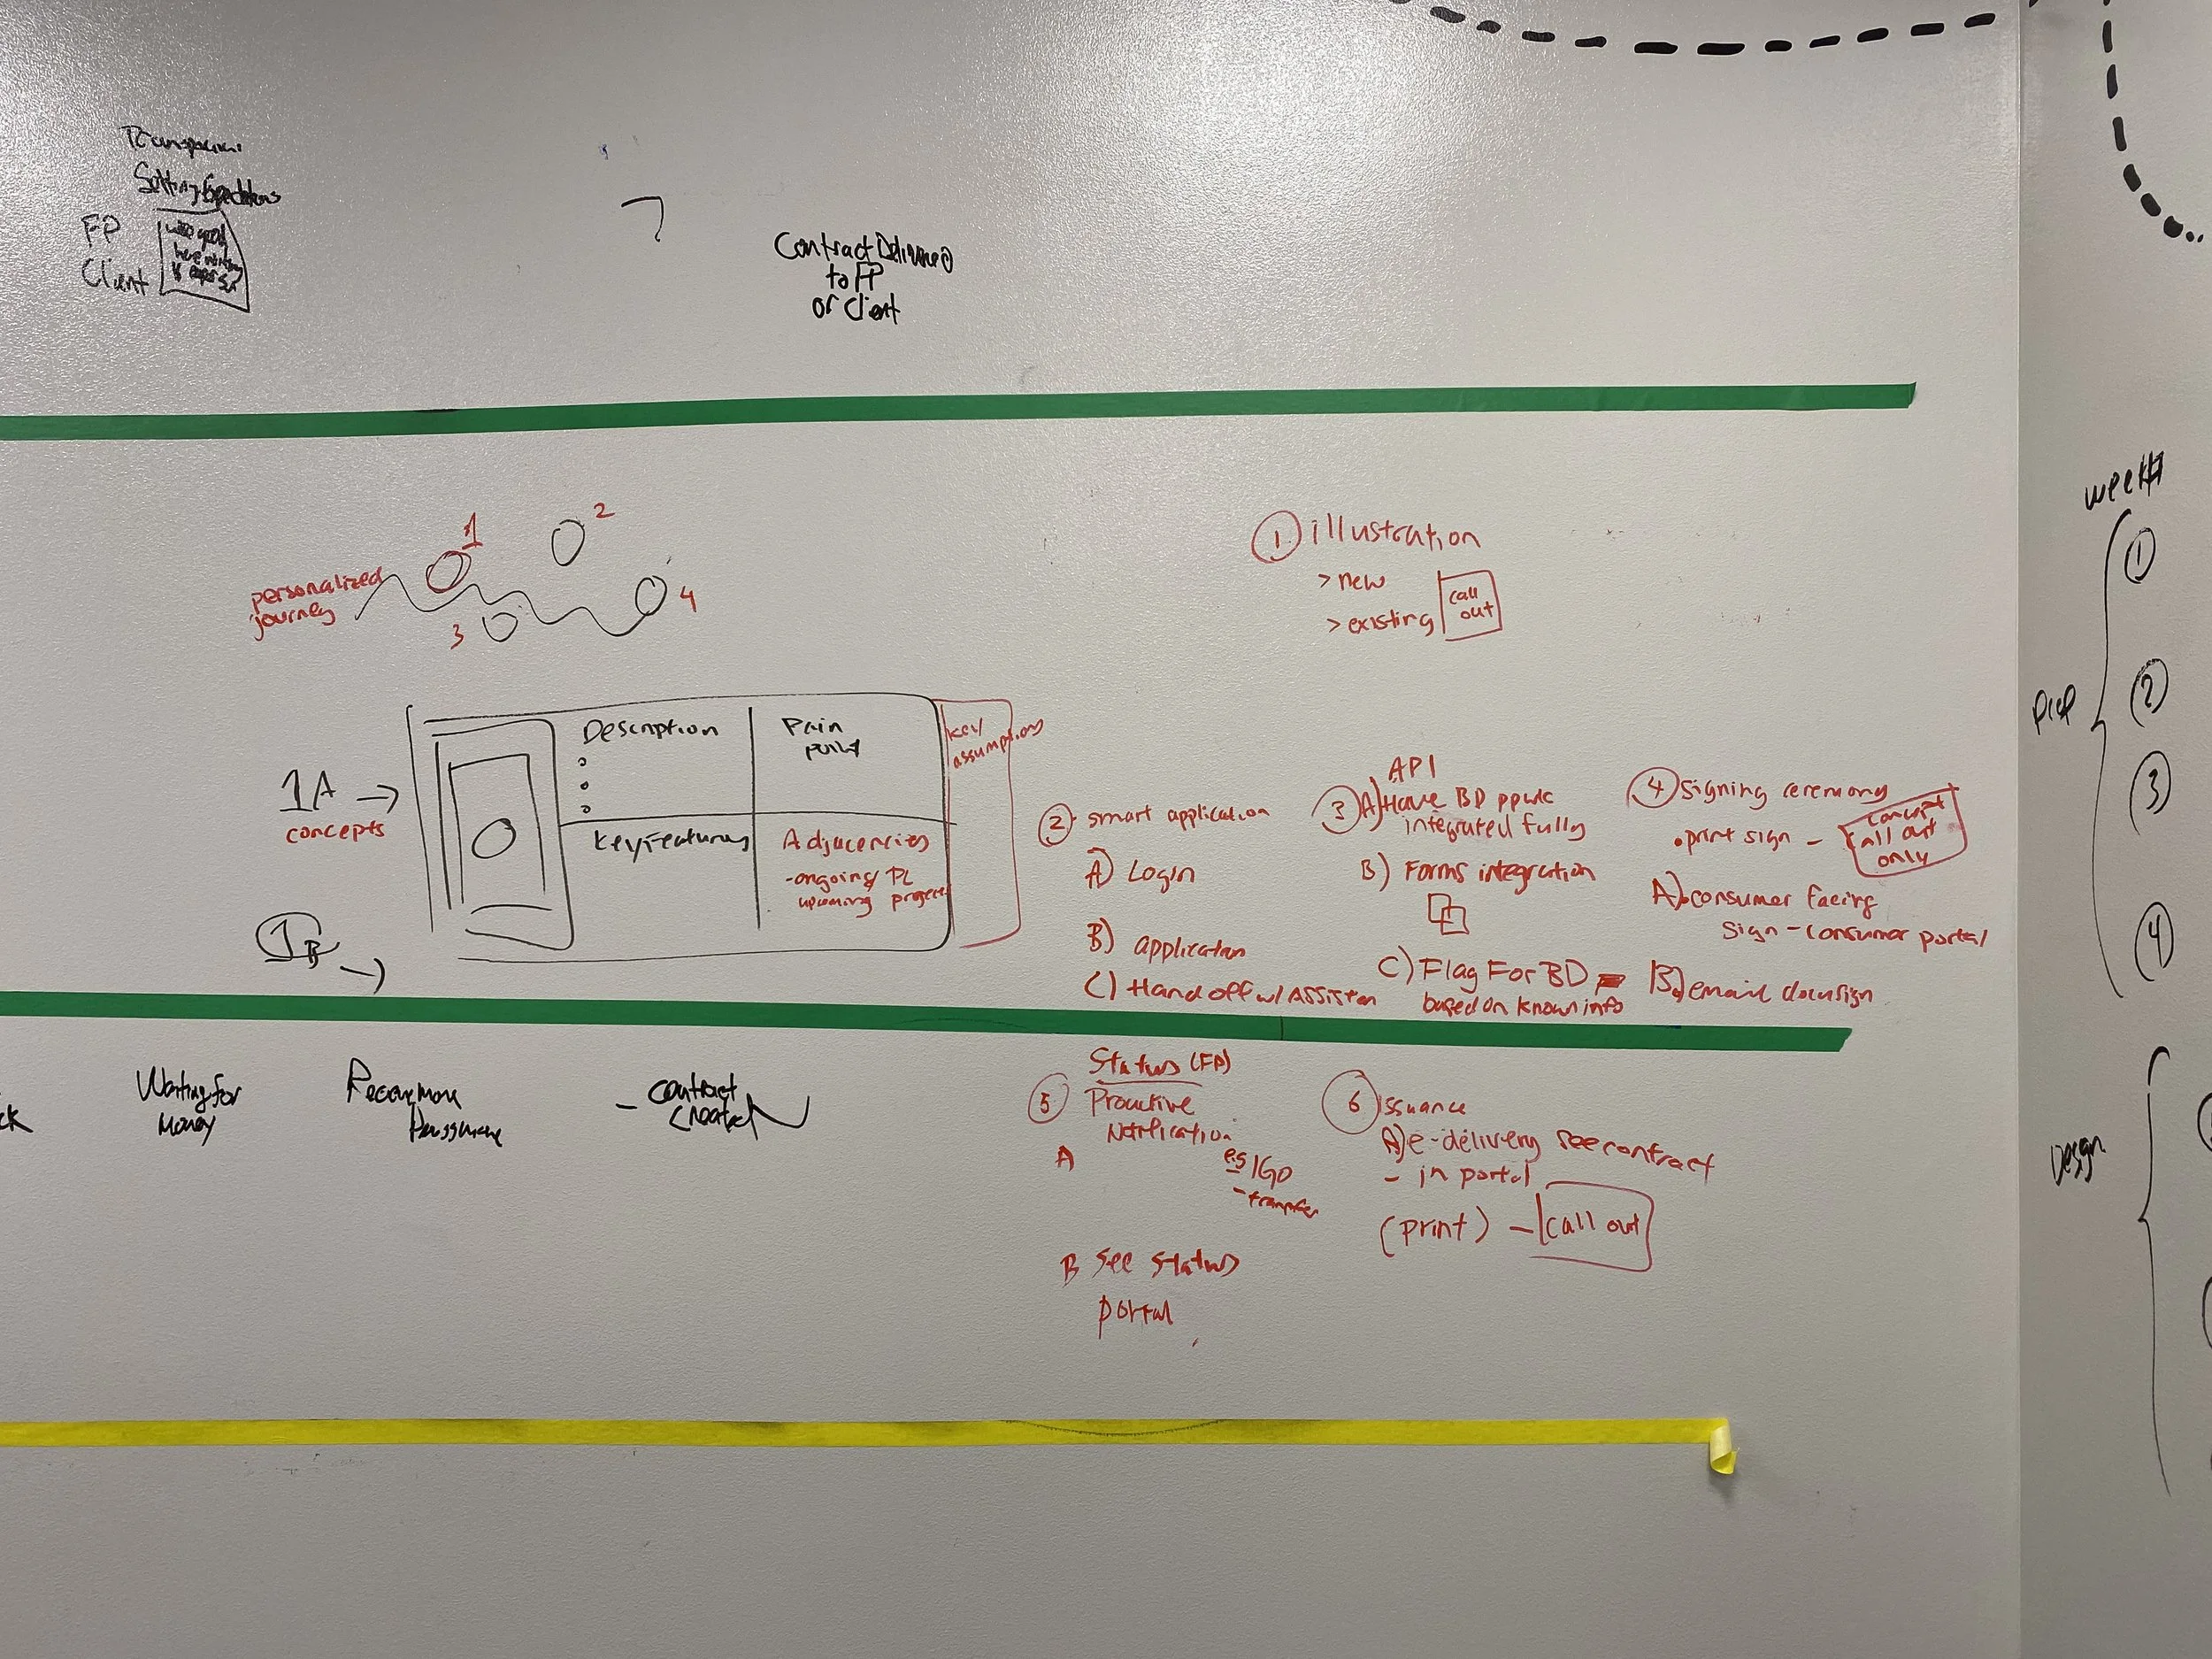 Setting Expectations
FP
Client
Contract Delivered
to FP
or Client
personalized
journey
1
2
3
4
1 illustration
> new
> existing
call
out
week#
1
2
3
4
1A →
concepts
Description
Pain
point
Key Features
Adjacencies
- ongoing/ PL
upcoming projects
key
assumptions
1B →
2. smart application
A) Login
B) application
C) Hand off w/ Assistan
API
3 A) Have BD ppwk
integrated fully
B) Forms integration
C) Flag For BD
based on known info
4 signing ceremony
• print sign -
concept
call out
only
A) consumer facing
sign - consumer portal
B) email docusign
Waiting for
Money
- contract
created
Status (FP)
5 Proactive
Notification
A
e.g IGO
- transfer
B see status
portal
6 Issuance
A) e-delivery see contract
- in portal
(print) - call out
Design